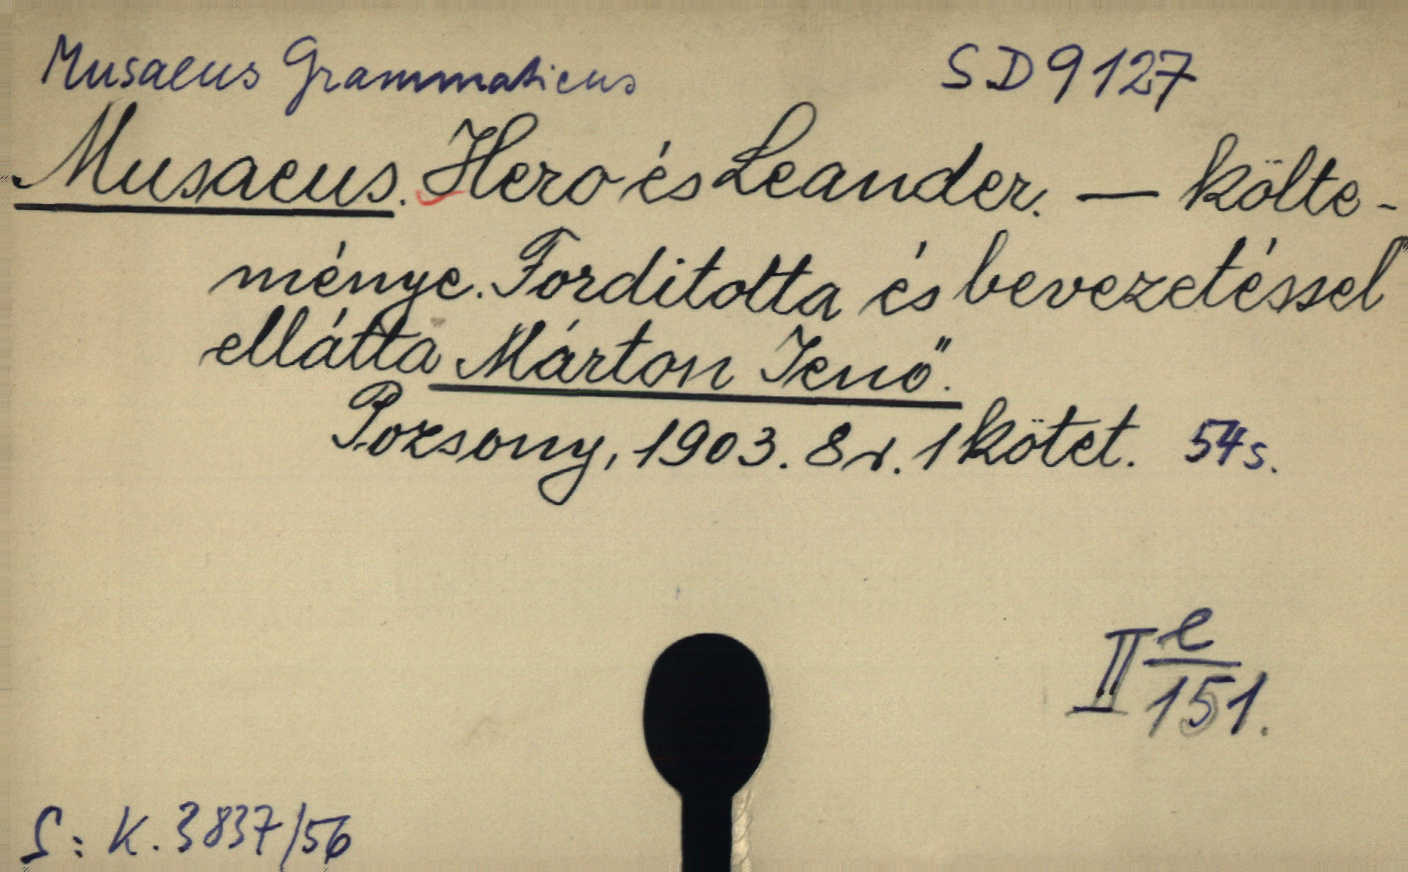 Musaeus Grammaticus SD9127
Musaeus. Hero és Leander. — költe-
ménye. Forditotta és bevezetéssel
ellátta Márton Jenő.
Pozsony, 1903. 8r. 1 kötet. 54 s.
II e/151.
S: K. 3837/56